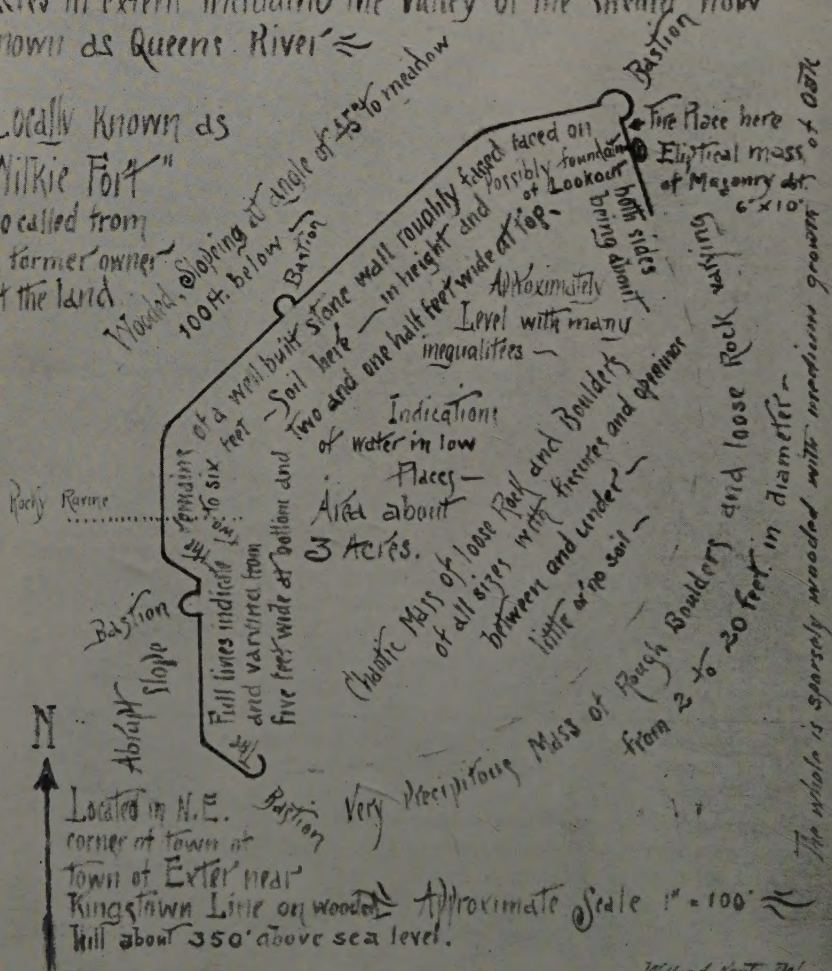 in extent including the valley of the now
nown as Queens River
Locally Known as
Wilkie Fort"
o called from
former owner
f the land
Wooded, Sloping at angle of 45° to meadow
100 ft. below
Bastion
Bastion
Fire Place here
Eliptical mass
of Masonry abt.
6' x 10'
Full lines indicate the remains of a well built stone wall roughly faced faced on both sides
and varying from two to six feet - Soil here - in height and being about
five feet wide at bottom and two and one half feet wide at Top-
Possibly foundation
of Lookout
Approximately
Level with many
inequalities -
Indications
of water in low
Places -
Area about
3 Acres.
Chaotic Mass of loose Rock and Boulders
of all sizes with fissures and openings
between and under -
little or no soil -
Very Precipitous Mass of Rough Boulders and loose Rock varying
from 2 to 20 feet in diameter -
The whole is sparsely wooded with medium growth of
Rocky Ravine
Bastion
Abrupt
Slope
Bastion
N
Located in N.E.
corner of town of
town of Exter near
Kingstown Line on wooded
hill about 350' above sea level.
Approximate Scale 1" = 100'